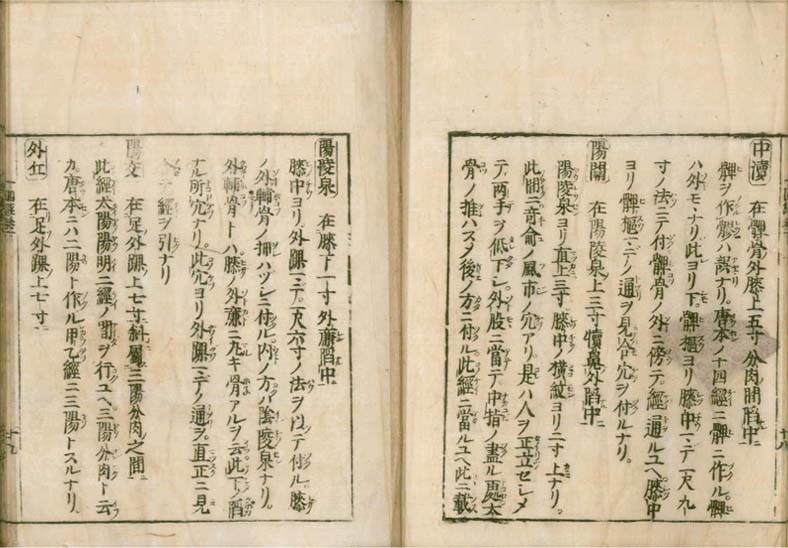 中瀆 在髀骨外膝上五寸分肉間陷中
髀ヲ作ルハ誤ナリ。唐本ノ十四經ニ髀ニ作ル。髀
ハ外モヽナリ此ヨリ下。髀樞ヨリ膝中マデ一尺九
寸ノ法ニテ付髀骨ノ外ニ傍テ經通ルユヘ膝中
ヨリ髀樞マデノ通ヲ見合穴ヲ付ルナリ。
陽關 在陽陵泉上三寸犢鼻外陷中
陽陵泉ヨリ直上三寸膝中ノ橫紋ヨリ二寸上ナリ。
此間ニ奇俞ノ風市ノ穴アリ是ハ人ヲ正立セシメ
テ兩手ヲ低下シ外股ニ當テ中指ノ盡ル處大
骨ノ推ハスメ後ノ方ニ付ル此經ニ當ルユヘ此ニ載
十八
陽陵泉 在膝下一寸外廉陷中
膝中ヨリ。外踝マデ一尺六寸ノ法ヲ以テ付ル膝
ノ外輔骨ノ押ハヅレニ付ル内ノ方ハ陰陵泉ナリ。
外輔骨トハ膝ノ外廉ニ丸キ骨アルヲ云此下ノ陷
ナル所穴ナリ。此穴ヨリ外踝マデノ通ヲ。直正ニ見
テ經ヲ引ナリ
陽交 在足外踝上七寸斜屬三陽分肉之間
此經太陽陽明二經ノ間ヲ行ユヘ三陽分肉ト云
カ唐本ニハ二陽ト作ル甲乙經ニ三陽トスルナリ。
外丘 在足外踝上七寸
十九